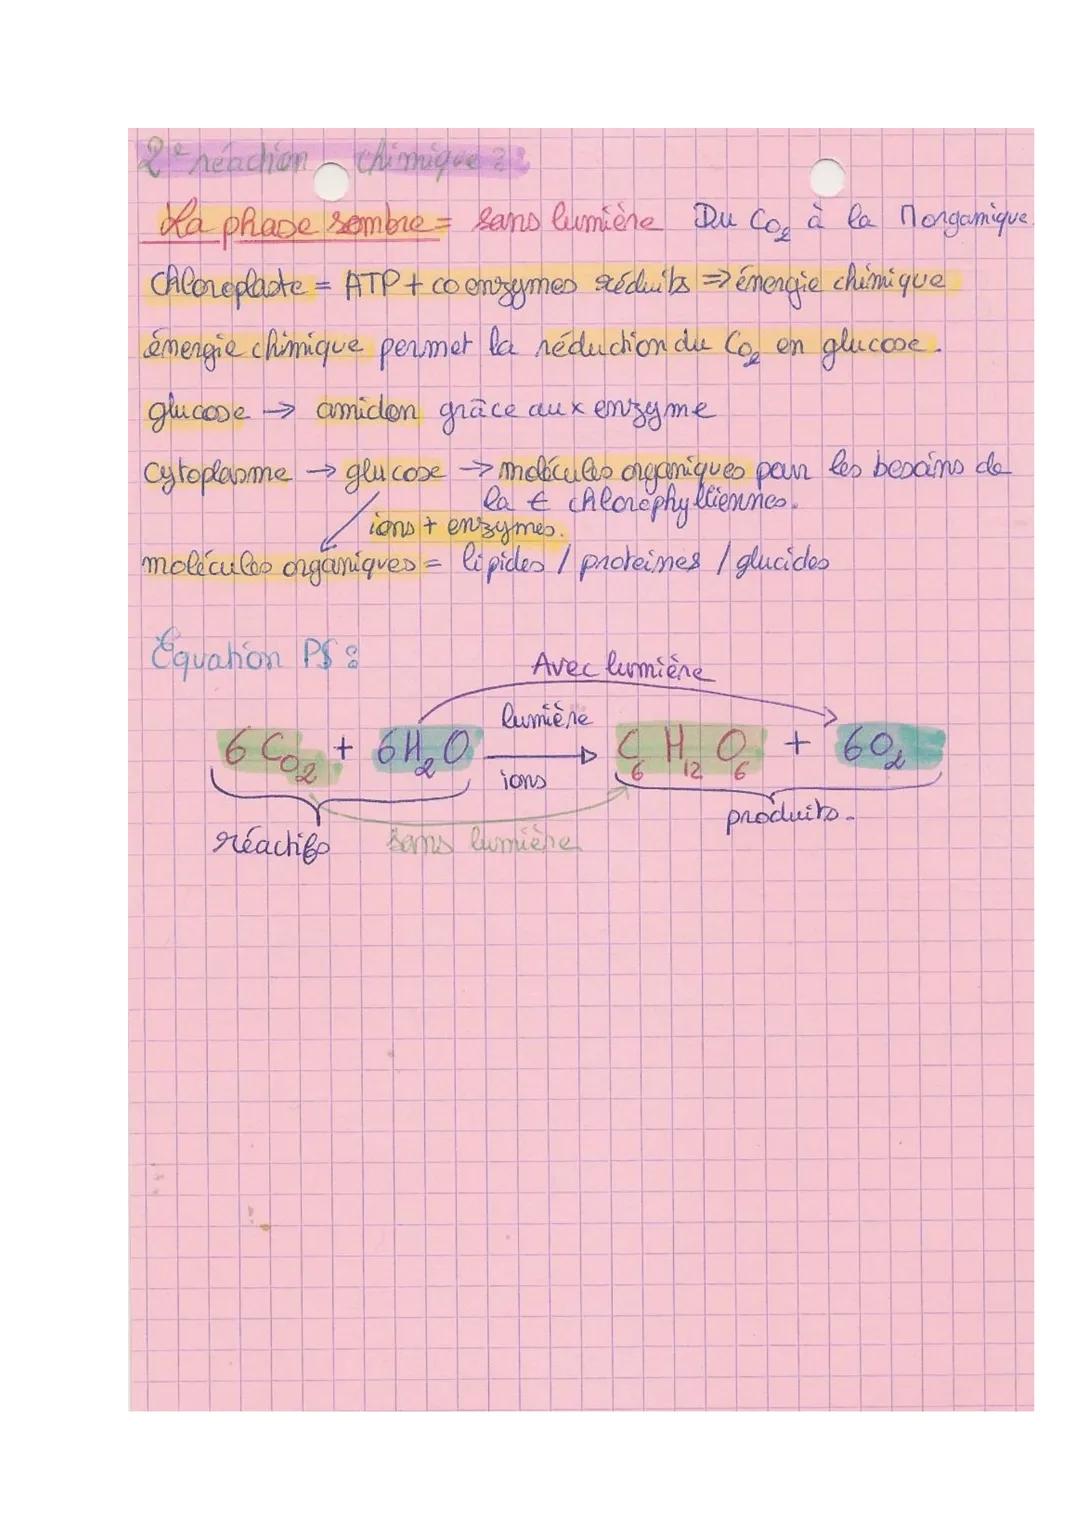 2e réaction chimique :
La phase sombre = sans lumière Du CO2 à la M organique.
Chloroplaste = ATP + coenzymes réduits ⇒ énergie chimique
énergie chimique permet la réduction du CO2 en glucose.
glucose → amidon grâce aux enzyme
cytoplasme → glucose → molécules organiques pour les besoins de
la ¢ chlorophylliennes.
ions + enzymes.
molécules organiques = lipides / proteines / glucides
Equation PS :
Avec lumière
lumière
6 CO2 + 6H2O → C6H12O6 + 6O2
ions
réactifs sans lumière produits.